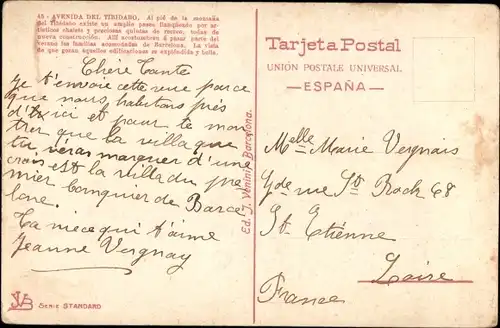 43 - AVENIDA DEL TIBIDABO. Al pié de la montaña
del Tibidabo existe un amplio paseo flanqueado por ar-
tísticos chalets y preciosas quintas de recreo, todas de
nueva construcción. Allí acostumbran á pasar parte del
Verano las familias acomodadas de Barcelona. La vista
de que gozan aquellos edificaciones es espléndida y bella.
Chère Tante
Je t'envoie cette vue parce
que nous habitons près
d'ici et pour te mon
trer que la villa que
tu verras marquer d'une
crois est la villa du pre
mier banquier de Barce
lone.
Ta niece qui t'aime
Jeanne Vergnay
Serie STANDARD
Ed. J. Venini, Barcelona.
Tarjeta Postal
UNIÓN POSTALE UNIVERSAL
— ESPAÑA —
Melle Marie Vergnais
Gde rue St Roch 68
St. Etienne
Loire
France